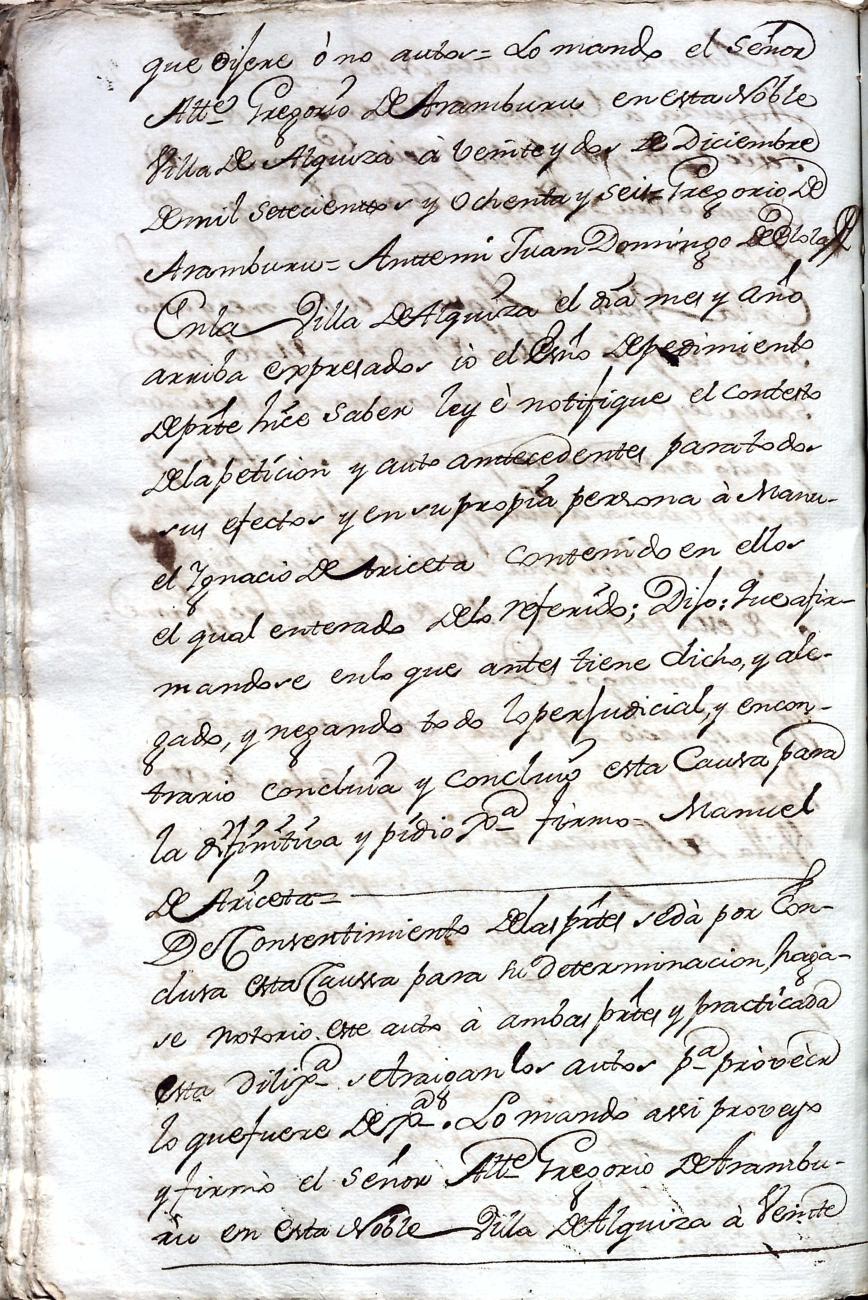 que dijere ò no autos = Lo mando el Señor
Altte Gregorio De Aramburu en esta Noble
Villa De Alquiza à Veinte y dos de Diciembre
De mil Setecientos y Ochenta y Seis = Gregorio De
Aramburu = Antemi Juan Domingo De
En la Villa De Alquiza el dia mes y año
arriba expresados io el Esno De pedimiento
De prte hice Saber ley è notifique el contesto
De la peticion y auto antecedentes para todos
sus efectos y en su propia persona à Manu-
el Ignacio De Ariceta contenido en ellos
el qual enterado De lo referido; Dijo: Que afir-
mandose en lo que antes tiene dicho, y ale-
gado, y negando todo lo perjudicial, y en con-
trario concluia y concluio esta Causa para
la difinitiva y pidio Jxa firmo = Manuel
De Ariceta =
De Consentimiento De las prtes se dà por Con-
clusa esta Caussa para su Determinacion, haga-
se notorio este auto à ambas prtes y practicada
esta dilixa se traigan los autos pa provèer
lo que fuere De Jxa. Lo mando assi proveyo
y firmò el Señor Altte Gregorio De Arambu-
ru en esta Noble Villa De Alquiza à Veinte